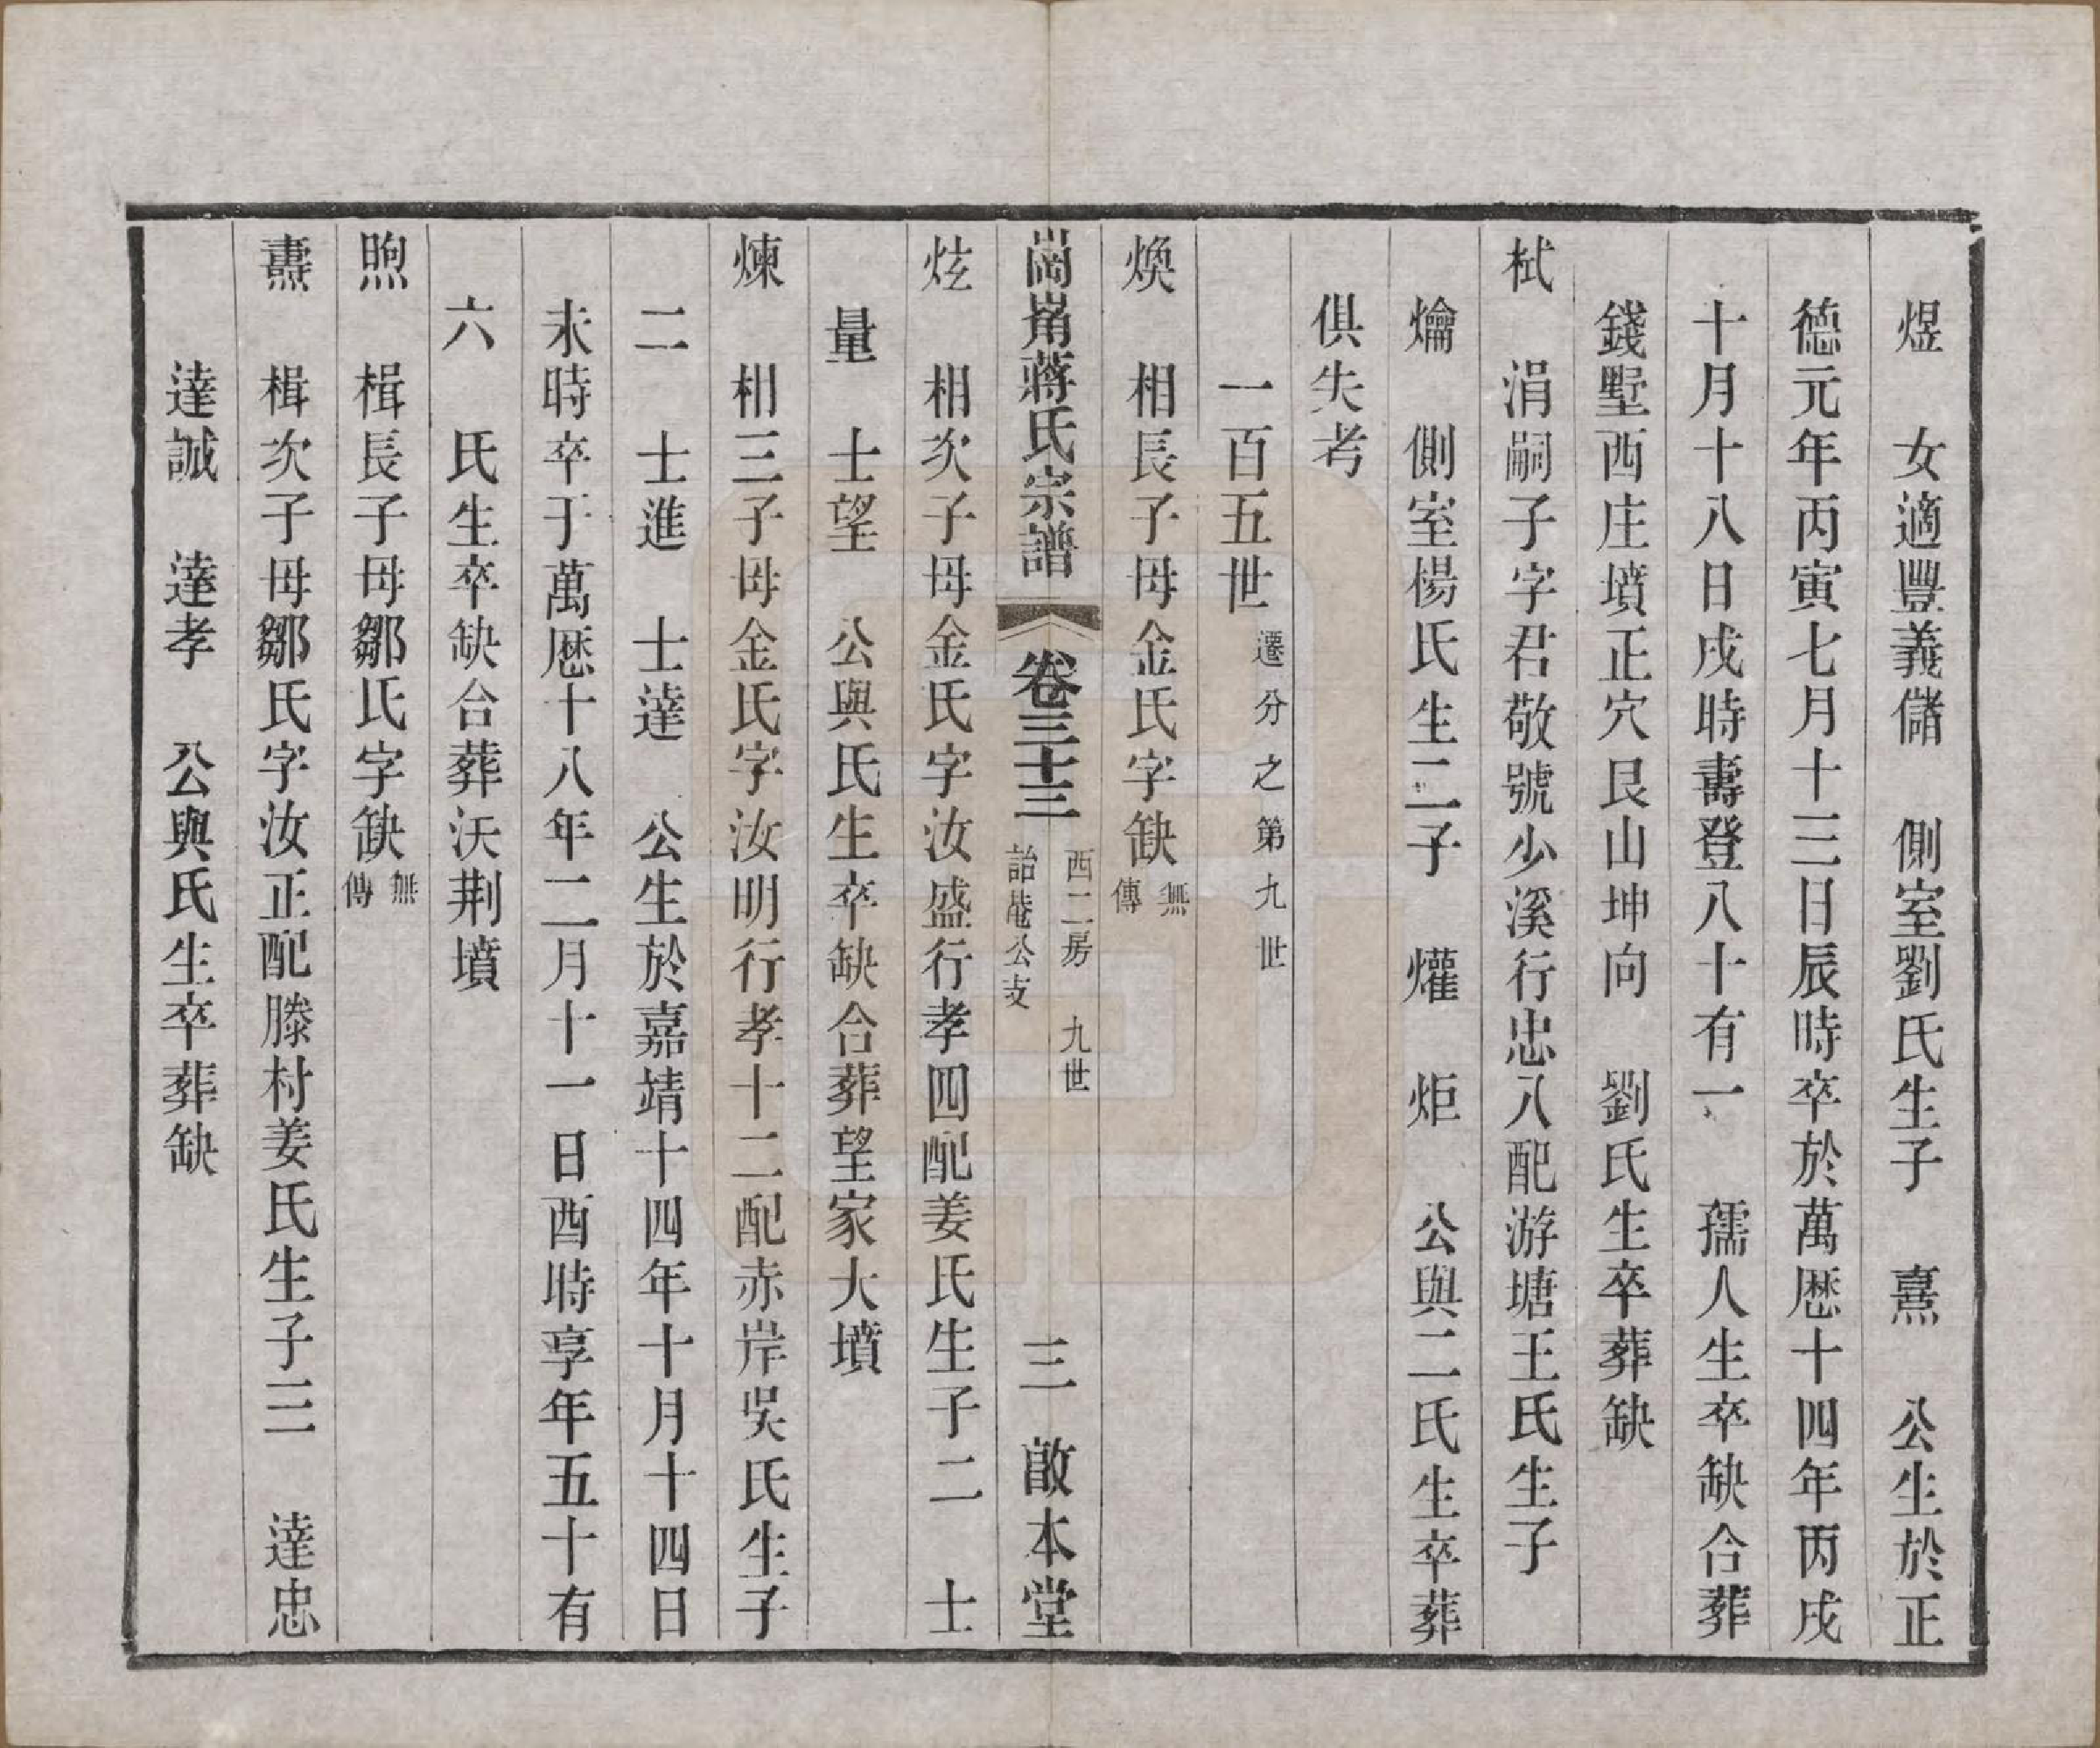 煜　女適豐義儲　側室劉氏生子　熹　公生於正
德元年丙寅七月十三日辰時卒於萬厯十四年丙戌
十月十八日戌時壽登八十有一　孺人生卒缺合葬
錢墅西庄墳正穴艮山坤向　劉氏生卒葬缺
栻　涓嗣子字君敬號少溪行忠八配游塘王氏生子
爚　側室楊氏生二子　爟　炬　公與二氏生卒葬
俱失考
一百五世遷分之第九世
煥　相長子母金氏字缺無傳
蔣氏宗譜　卷三十三　西二房　九世　詒菴公支　三　啟本堂
炫　相次子母金氏字汝盛行孝四配姜氏生子二　士
量　士望　公與氏生卒缺合葬望家大墳
煉　相三子母金氏字汝明行孝十二配赤岸吳氏生子
二　士進　士達　公生於嘉靖十四年十月十四日
未時卒于萬厯十八年二月十一日酉時享年五十有
六　氏生卒缺合葬沃荆墳
煦　楫長子母鄒氏字缺無傳
燾　楫次子母鄒氏字汝正配滕村姜氏生子三　達忠
達誠　達孝　公與氏生卒葬缺